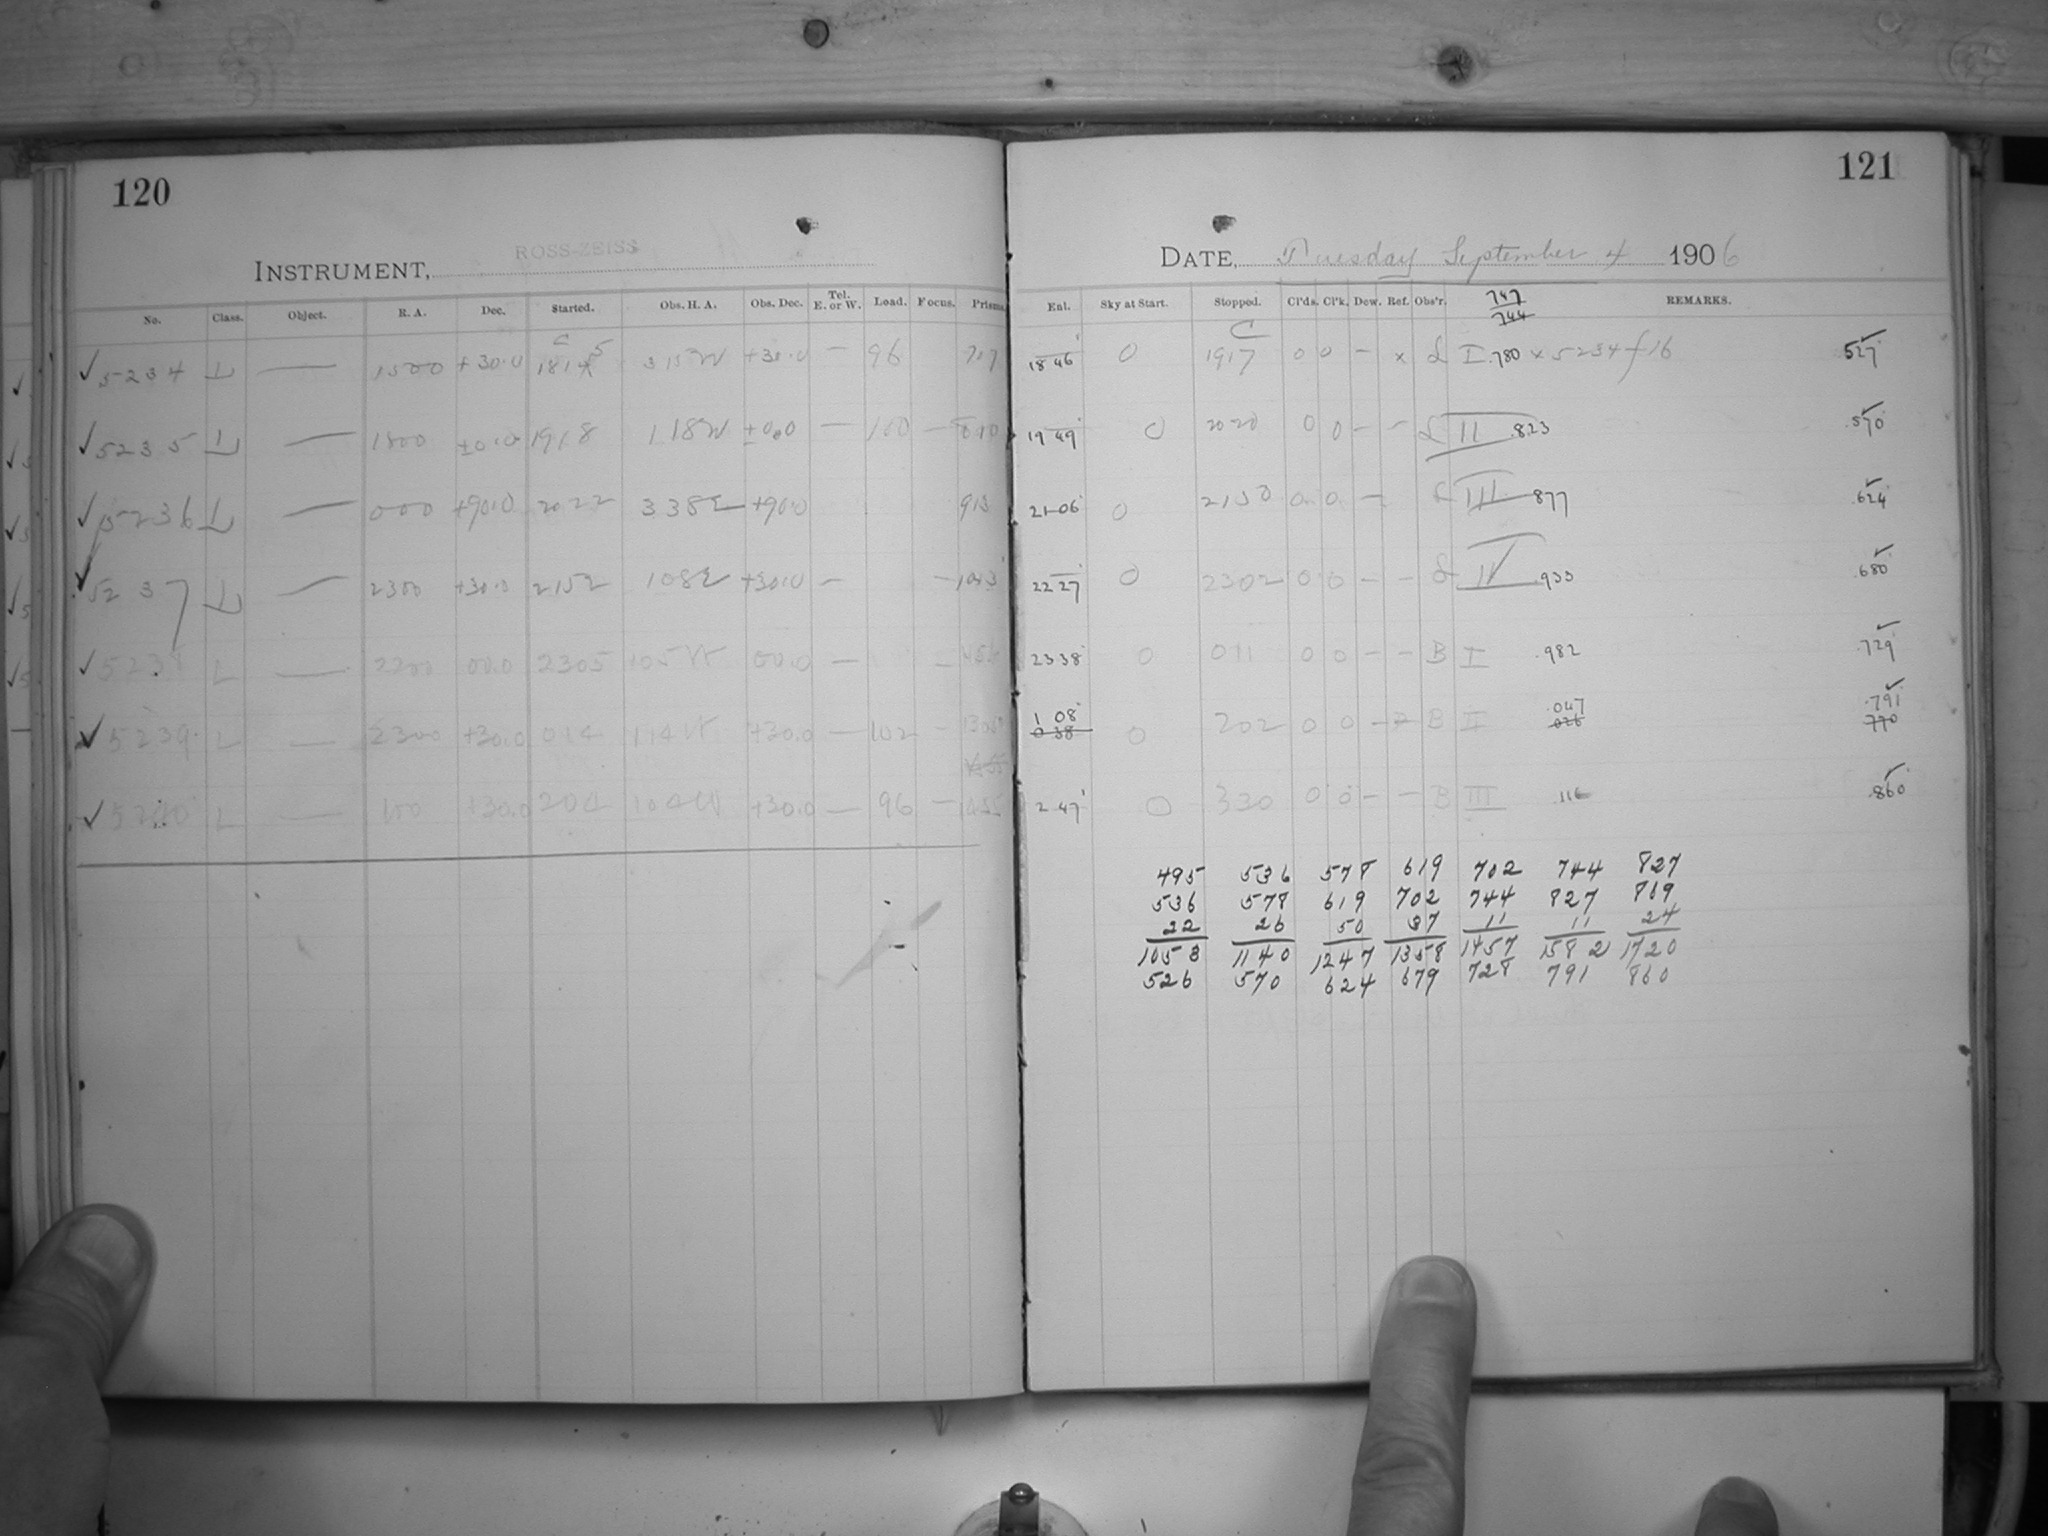 120
ROSS-ZEISS
INSTRUMENT,
No. Class. Object. R. A. Dec. Started. Obs. H. A. Obs. Dec. Tel. E. or W. Load. Focus. Prisms.
5234 L — 1500 +30.0 1815 315W +30.0 — 96
5235 L — 1800 ±0.0 1918 118W ±0.0 — 100 —
5236 L — 000 +90.0 2022 338E +90.0 913
5237 L — 2300 +30.0 2152 108E +30.0 — —
5238 L — 2200 00.0 2305 105W 00.0 — —
5239 L — 2300 +30.0 014 114W +30.0 — 102 —
5240 L — 100 +30.0 204 104W +30.0 — 96 —
121
DATE, Tuesday September 4 1906
Ent. Sky at Start. Stopped. Cl'ds. Cl'k. Dew. Ref. Obs'r. 747 744 REMARKS.
18 46 0 C 1917 0 0 — x L I .780 x 5234 f 16 .527
19 49 0 2020 0 0 — — L II .823 .570
21 06 0 2150 0 0 — L III .877 .624
22 27 0 2302 0 0 — — L IV .933 .680
23 38 0 011 0 0 — — B I .982 .729
1 08 0 38 0 202 0 0 — B II .047 .026 .791 .770
2 47 0 330 0 0 — — B III .116 .860
495 536 578 619 702 744 827
536 578 619 702 744 827 869
22 26 50 37 11 11 24
1053 1140 1247 1358 1457 1582 1720
526 570 624 679 728 791 860